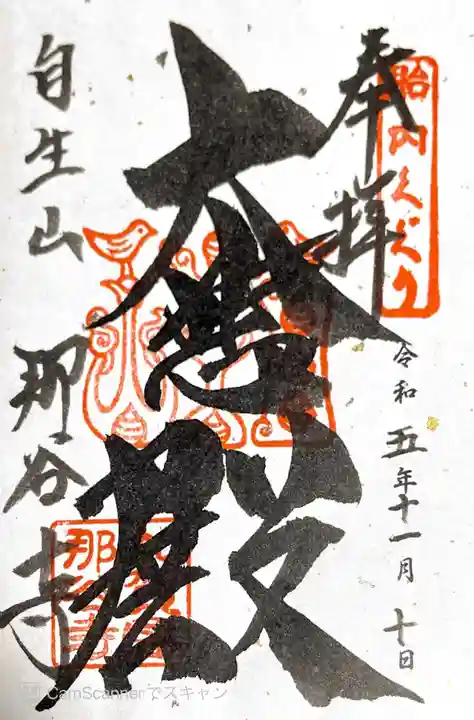 奉拝
胎内くぐり
令和五年十一月十日
大悲殿
自生山 那谷寺
CamScannerでスキャン